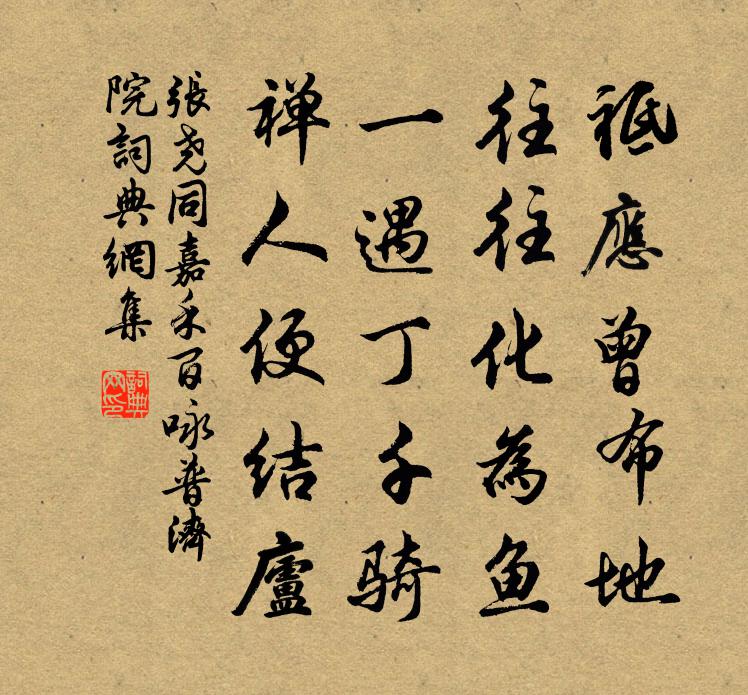 祗應曾布地
往往化為魚
一遇丁千騎
禅人便结廬
張尧同嘉禾百咏普濟
院詞典網集
詞典
网印